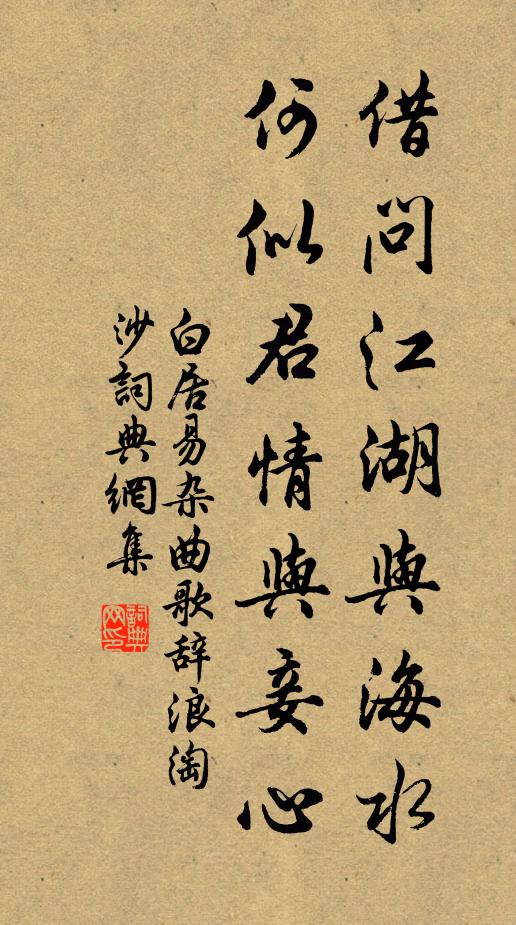 借问江湖與海水
何似君情與妾心
白居易杂曲歌辞浪淘
沙詞典網集
詞典
网印